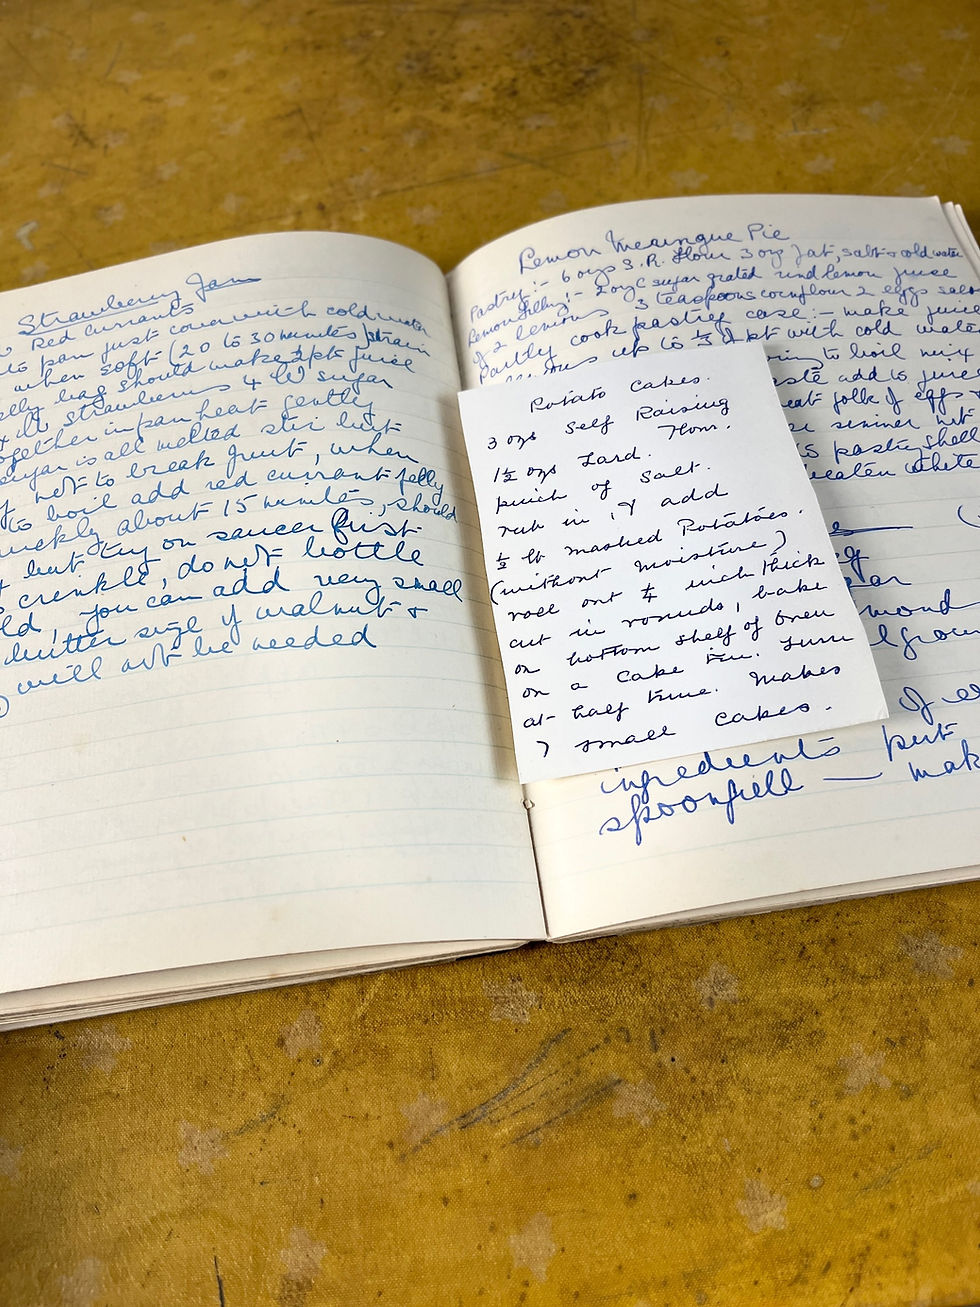 Strawberry Jam
Red currants
to pan just cover with cold water
when soft (20 to 30 minutes) strain
jelly bag should make ½ pt juice
4 lb strawberries 4 lb sugar
together in pan heat gently
sugar is all melted stir but
not to break fruit, when
to boil add red currant jelly
quickly about 15 minutes, should
but try on saucer first
crinkle, do not bottle
you can add very small
butter size of walnut &
will not be needed
Lemon Meringue Pie
Pastry:- 6 ozs S.R. Flour 3 ozs fat, salt & cold water
Lemon filling:- 2 ozs C sugar grated rind lemon juice
of 2 lemons 3 teaspoons cornflour 2 eggs
Partly cook pastry case:- make juice
up to ½ pt with cold water
to boil mix
add to juice
yolk of eggs &
simmer
pastry shell
beaten white
Potato Cakes.
3 ozs Self Raising
Flour.
1½ ozs Lard.
pinch of Salt.
rub in, & add
½ lb mashed Potatoes.
(without moisture)
roll out ¼ inch thick
cut in rounds, bake
on bottom shelf of oven
on a cake tin. Turn
at half time. Makes
7 small cakes.
ingredients put
spoonfull — mak